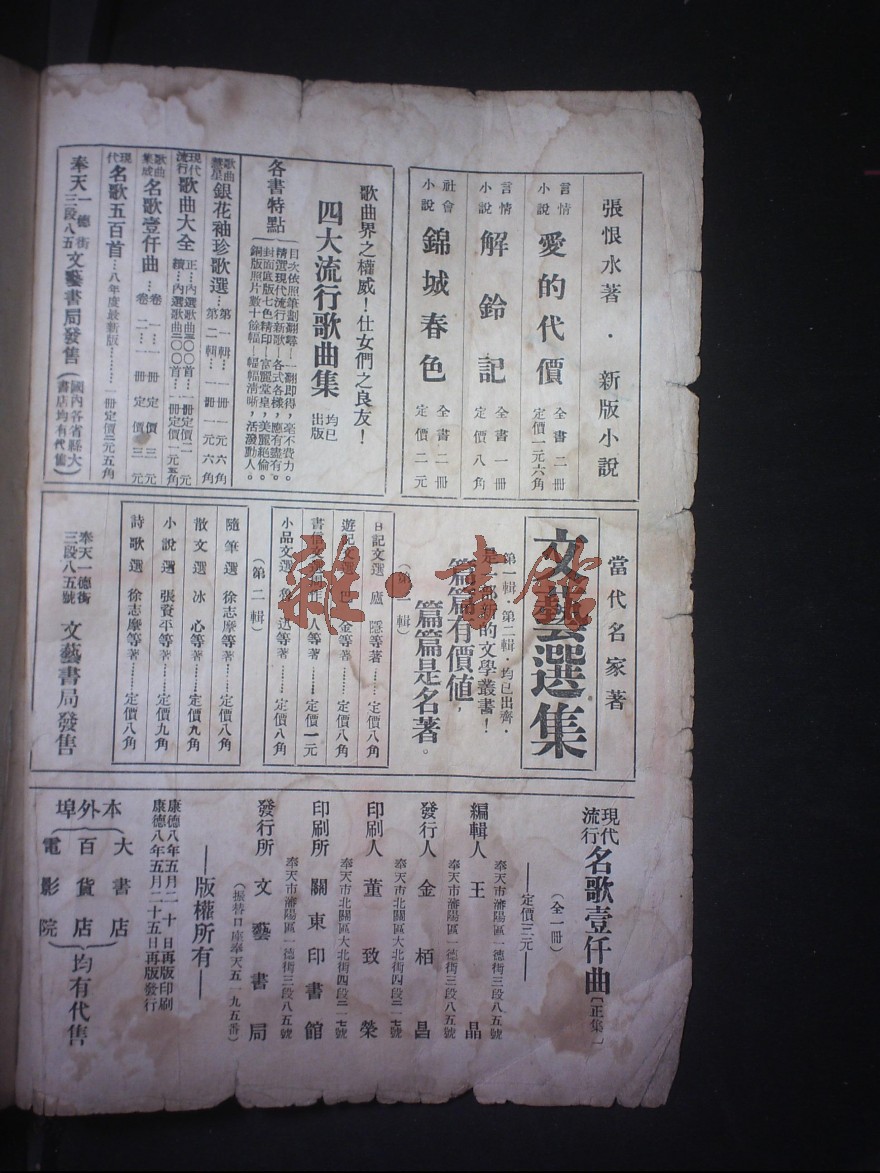 張恨水著・新版小說
言情小說 愛的代價 全書二冊 定價一元六角
言情小說 解鈴記 全書一冊 定價八角
社會小說 錦城春色 全書二冊 定價二元
歌曲界之權威！仕女們之良友！
四大流行歌曲集 均已出版
各書特點
目次依照筆劃翻尋…一翻即得，毫不費力。
精選現代流行新歌…各式各樣，應有盡有。
封面底版七色精印…富麗堂皇，美麗絕倫。
銅版照片數十餘幅…幅幅清晰，活潑動人。
歌曲彗星 銀花袖珍歌選…第一輯…一冊一元六角
第二輯…一冊一元六角
現代流行 歌曲大全 正…內選歌曲三〇〇首…一冊定價二元
續…內選歌曲二〇〇首…一冊定價一元五角
歌曲集成 名歌壹仟曲…卷一…一冊定價三元
卷二…一冊定價三元
現代 名歌五百首…八年度最新版………一冊定價二元五角
奉天一德街三段八五 文藝書局發售（國內各省縣大書店均有代售）
當代名家著
文藝選集
第一輯 第二輯・均已出齊・
是一部新的文學叢書！
篇篇有價值，
篇篇是名著。
（第一輯）
日記文選 廬隱等著……定價八角
遊記文選 巴金等著……定價八角
書信文選 人等著……定價一元
小品文選 魯迅等著……定價八角
（第二輯）
隨筆選 徐志摩等著……定價八角
散文選 冰心等著……定價九角
小說選 張資平等著……定價九角
詩歌選 徐志摩等著……定價八角
奉天一德街三段八五號 文藝書局發售
現代流行 名歌壹仟曲〔正集〕
（全一冊）
——定價三元——
奉天市瀋陽區一德街三段八五號
編輯人 王晶
奉天市瀋陽區一德街三段八五號
發行人 金栢昌
奉天市北關區大北街四段二一七號
印刷人 董致榮
奉天市北關區大北街四段二一七號
印刷所 關東印書館
奉天市瀋陽區一德街三段八五號
發行所 文藝書局
（振替口座奉天五一九五番）
——版權所有——
康德八年五月二十日再版印刷
康德八年五月二十五日再版發行
本外埠 大書店 百貨店 電影院 均有代售
雜・書館